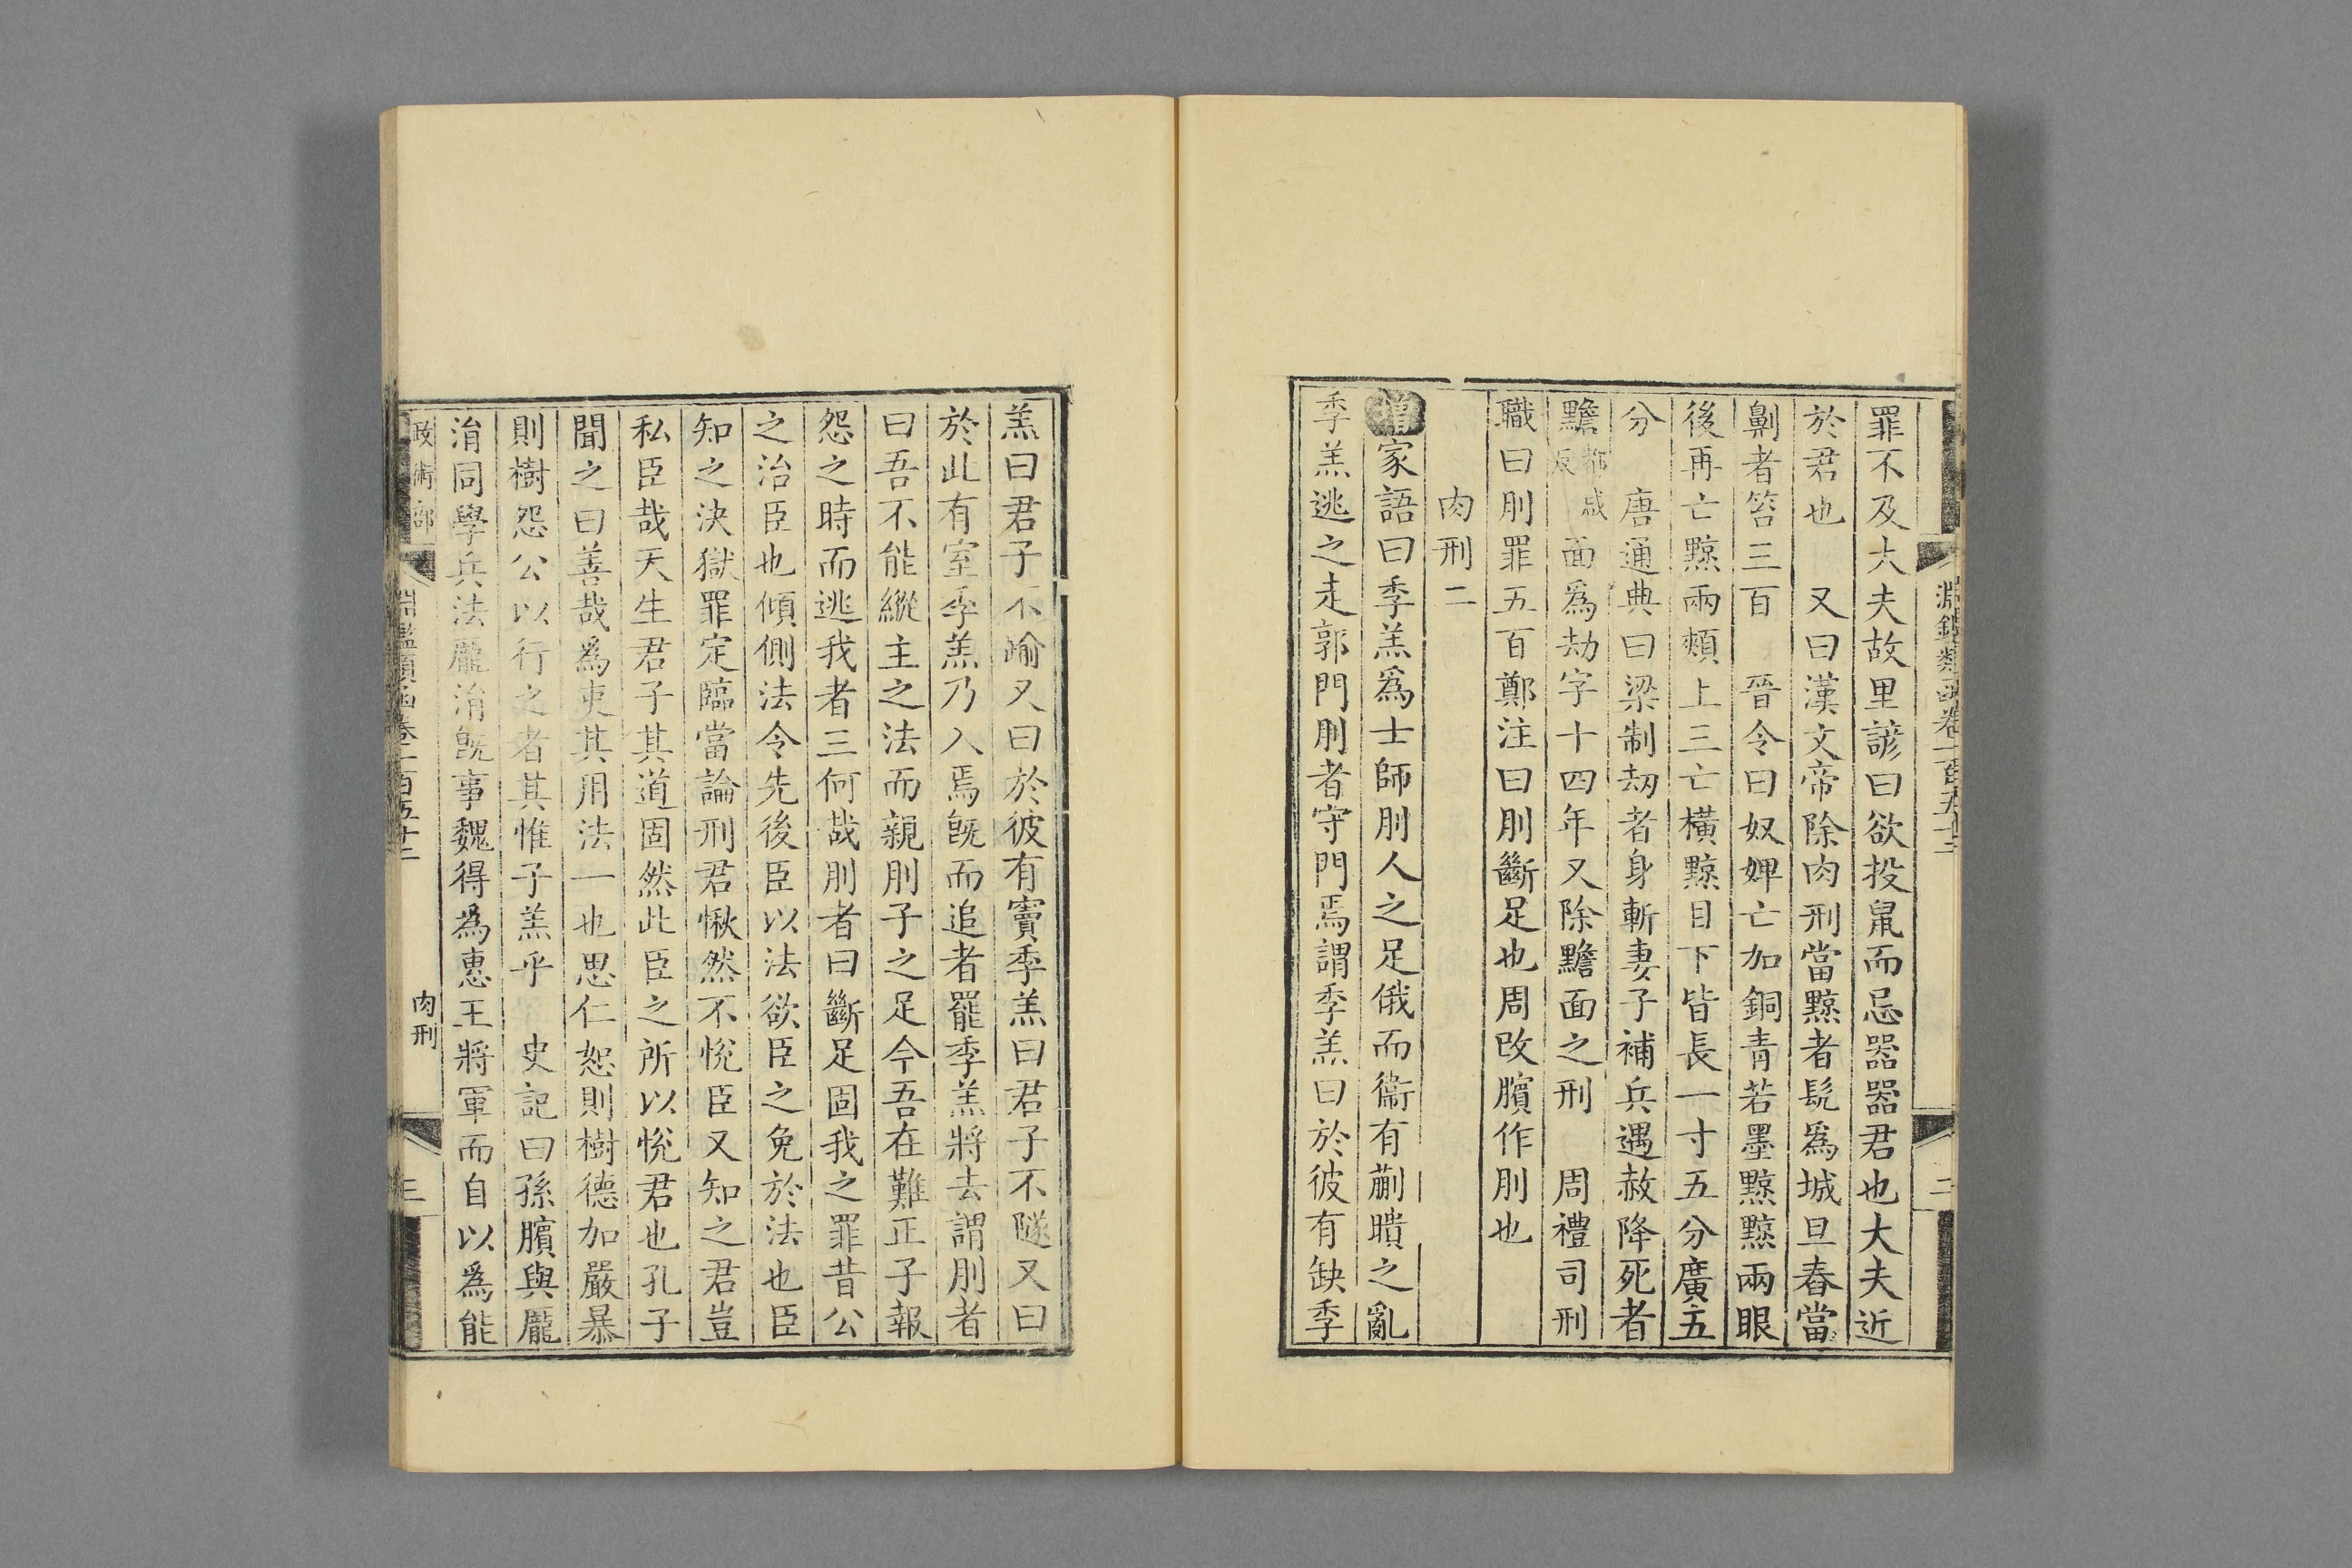 淵鑑類函卷一百五十二
二
罪不及大夫故里諺曰欲投鼠而忌器器君也大夫近
於君也 又曰漢文帝除肉刑當黥者髡爲城旦舂當
劓者笞三百 晉令曰奴婢亡加銅青若墨黥黥兩眼
後再亡黥兩頰上三亡橫黥目下皆長一寸五分廣五
分 唐通典曰梁制劫者身斬妻子補兵遇赦降死者
黵都感反面爲劫字十四年又除黵面之刑 周禮司刑
職曰刖罪五百鄭注曰刖斷足也周改臏作刖也
肉刑二
增家語曰季羔爲士師刖人之足俄而衞有蒯聵之亂
季羔逃之走郭門刖者守門焉謂季羔曰於彼有缺季
羔曰君子不踰又曰於彼有竇季羔曰君子不隧又曰
於此有室季羔乃入焉旣而追者罷季羔將去謂刖者
曰吾不能縱主之法而親刖子之足今吾在難正子報
怨之時而逃我者三何哉刖者曰斷足固我之罪昔公
之治臣也傾側法令先後臣以法欲臣之免於法也臣
知之決獄罪定臨當論刑君愀然不悅臣又知之君豈
私臣哉天生君子其道固然此臣之所以悅君也孔子
聞之曰善哉爲吏其用法一也思仁恕則樹德加嚴暴
則樹怨公以行之者其惟子羔乎 史記曰孫臏與龐
涓同學兵法龐涓旣事魏得爲惠王將軍而自以爲能
政術部
淵鑑類函卷一百五十二
肉刑
三